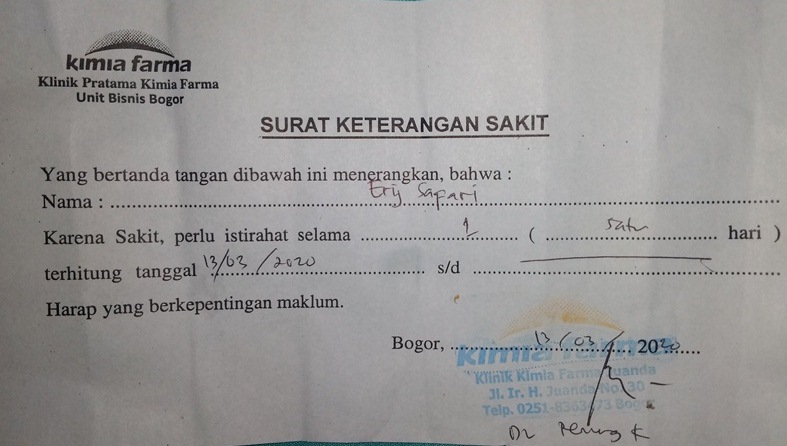 kimia farma
Klinik Pratama Kimia Farma
Unit Bisnis Bogor
SURAT KETERANGAN SAKIT
Yang bertanda tangan dibawah ini menerangkan, bahwa :
Nama : ........ Sapari ........
Karena Sakit, perlu istirahat selama ........ 1 ........ ( ........ satu ........ hari )
terhitung tanggal 13/03/2020 ........ s/d ........
Harap yang berkepentingan maklum.
Bogor, ........ 13/03/ ........ 2020
kimia farma
Klinik Kimia Farma Juanda
Jl. Ir. H. Juanda No. 30
Telp. 0251- Bogor
Dr K